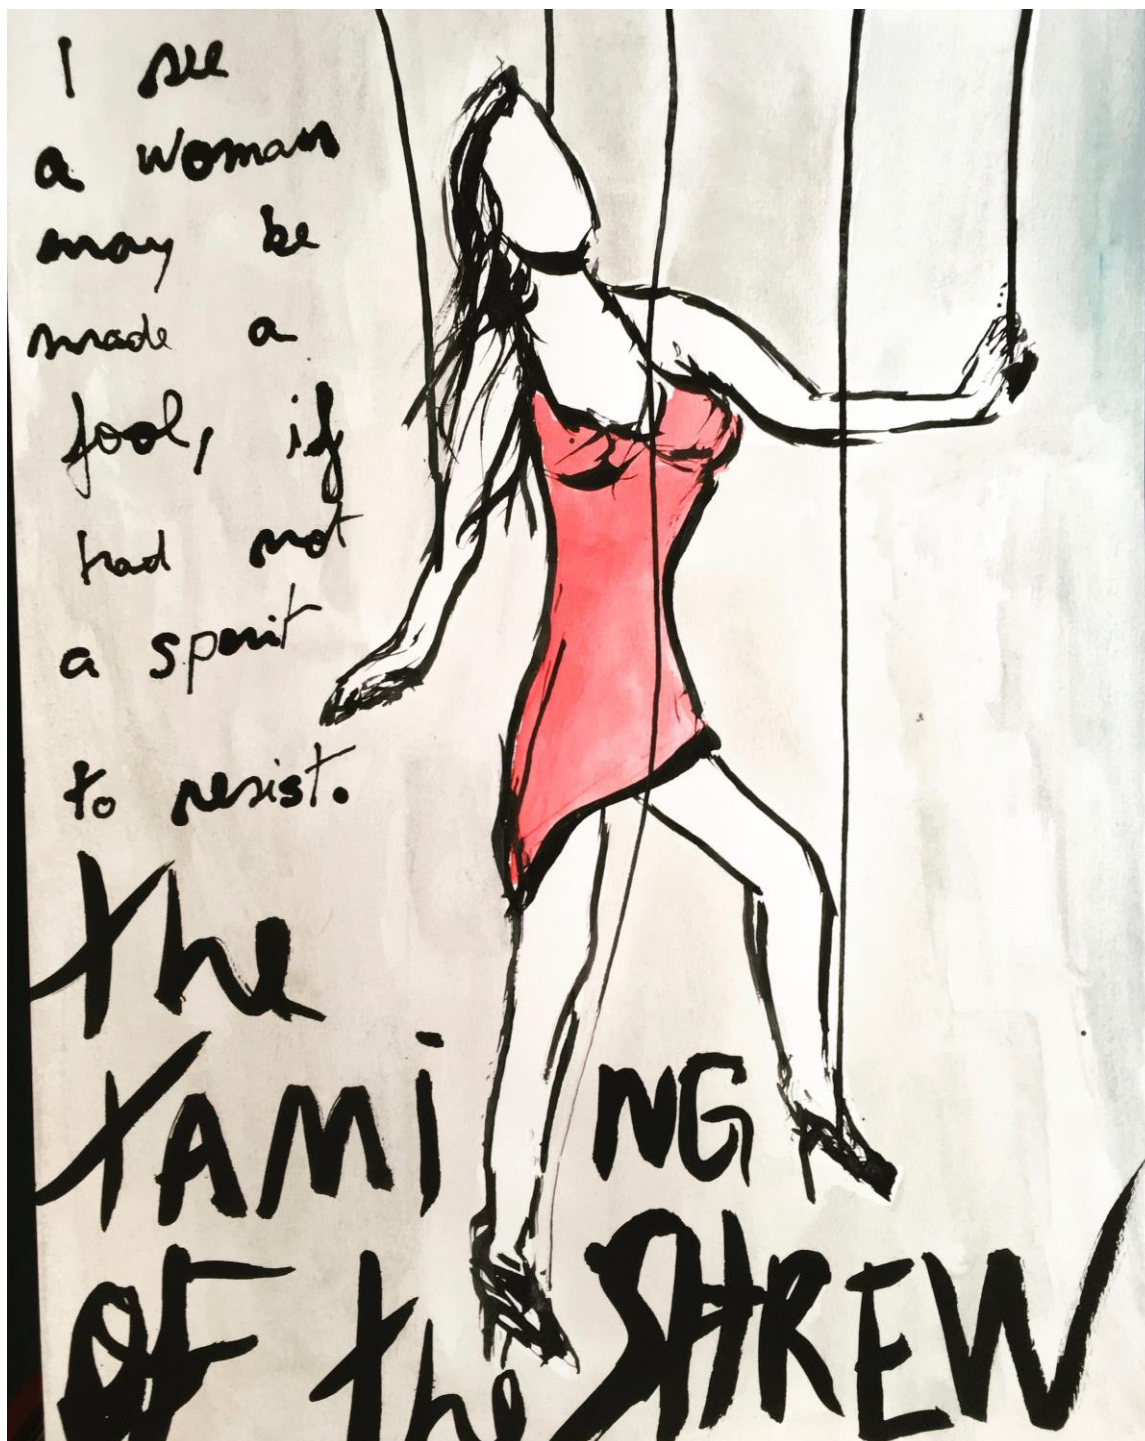 I see
a woman
may be
made a
fool, if
had not
a spirit
to resist.
the
TAMiNG
OF the SHREW